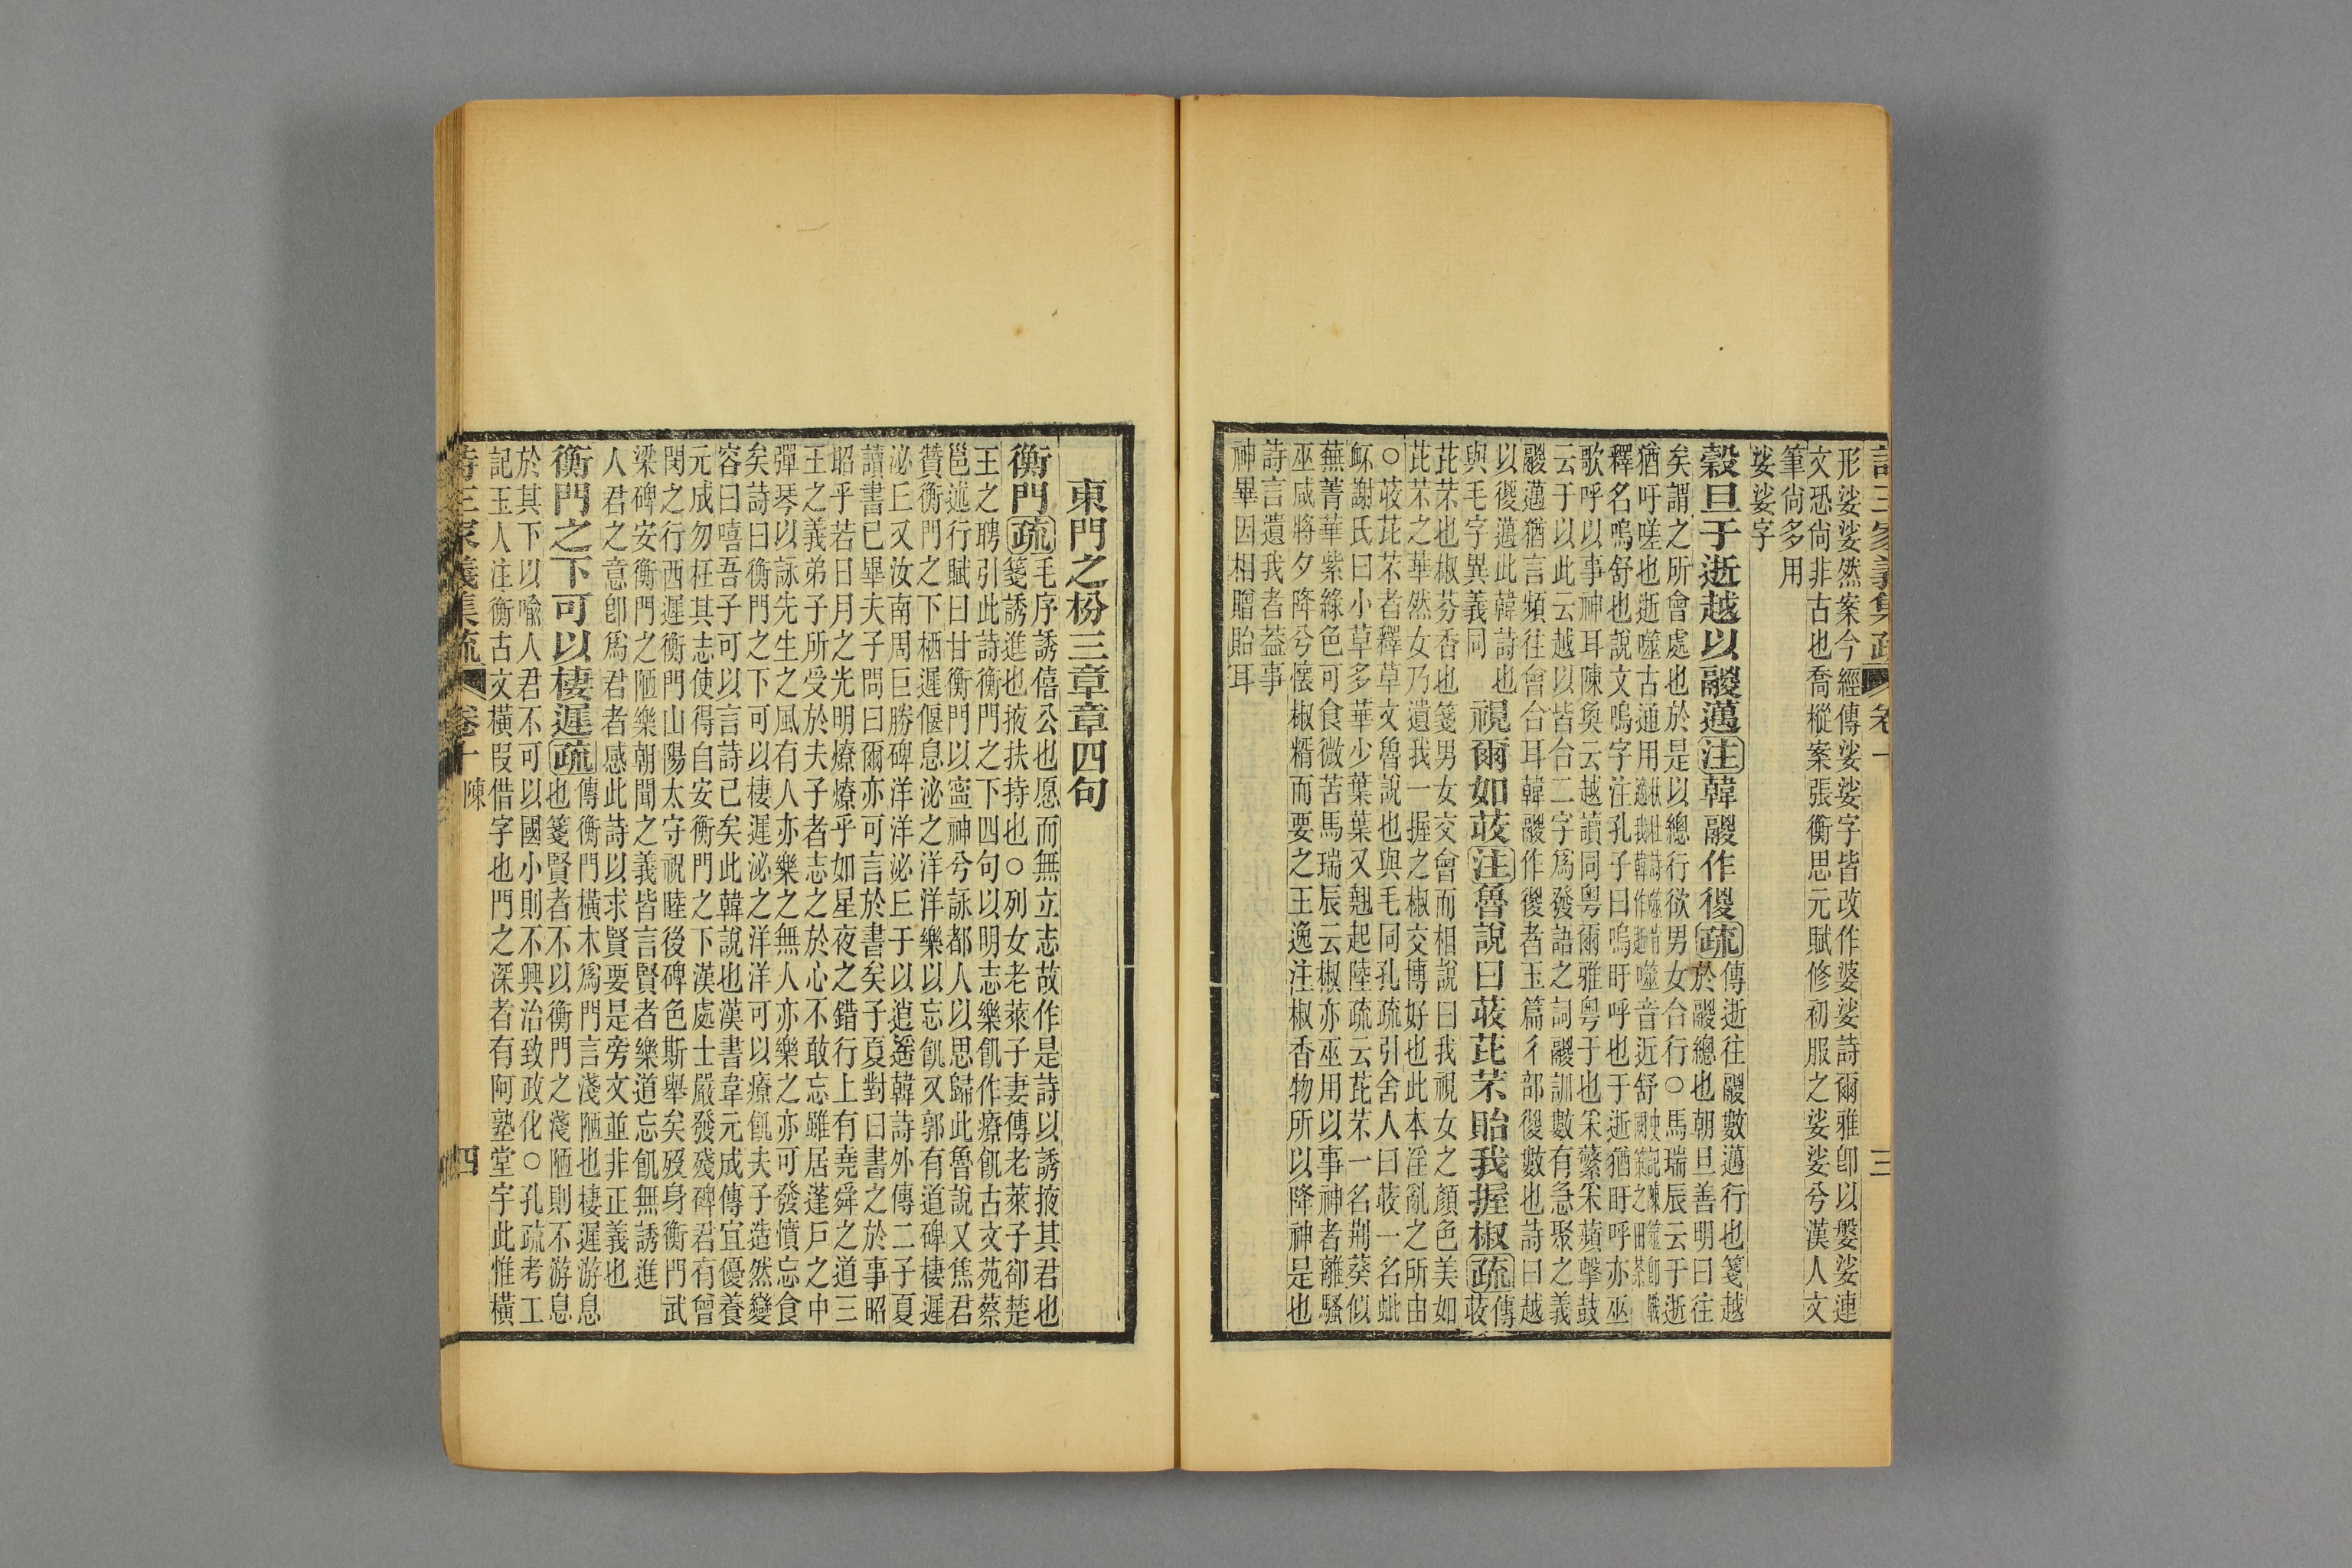 詩三家義集疏 卷十 三
形娑娑然案今經傳娑娑字皆改作婆娑詩爾雅卽以媻娑連
文恐尙非古也喬樅案張衡思元賦修初服之娑娑兮漢人文
筆尙多用
娑娑字
穀旦于逝越以鬷邁注韓鬷作㚇疏
傳逝往鬷數邁行也箋越
於鬷總也朝旦善明曰往
矣謂之所會處也於是以總行欲男女合行○馬瑞辰云于逝
猶吁嗟也逝噬古通用
逝噬音近舒
釋名嗚舒也說文嗚字注孔子曰嗚盱呼也于逝猶盱呼亦巫
歌呼以事神耳陳奐云越讀同粤爾雅粤于也采蘩采蘋擊鼓
云于以此云越以皆台二字爲發語之詞鬷訓數有急聚之義
鬷邁猶言頻往會台耳韓鬷作㚇者玉篇彳部㚇數也詩曰越
以㚇邁此韓詩也
與毛字異義同
視爾如荍注魯說曰荍芘芣貽我握椒疏
傳
荍
芘芣也椒芬香也箋男女交會而相說曰我視女之顏色美如
芘芣之華然女乃遺我一握之椒交博好也此本淫亂之所由
○荍芘芣者釋草文魯說也與毛同孔疏引舍人曰荍一名蚍
衃謝氏曰小草多華少葉葉又翹起陸疏云芘芣一名荆葵似
蕪菁華紫綠色可食微苦馬瑞辰云椒亦巫用以事神者離騷
巫咸將夕降兮懷椒糈而要之王逸注椒香物所以降神是也
詩言遺我者葢事
神畢因相贈貽耳
東門之枌三章章四句
衡門疏
毛序誘僖公也愿而無立志故作是詩以誘掖其君也
箋誘進也掖扶持也○列女老萊子妻傳老萊子卻楚
王之聘引此詩衡門之下四句以明志樂飢作療飢古文苑蔡
邕述行賦曰甘衡門以寧神兮詠都人以思歸此魯說又焦君
贊衡門之下棲遲偃息泌之洋洋樂以忘飢又郭有道碑棲遲
泌丘又汝南周巨勝碑洋洋泌丘于以逍遙韓詩外傳二子夏
讀書已畢夫子問曰爾亦可言於書矣子夏對曰書之於事昭
昭乎若日月之光明燎燎乎如星夜之錯行上有堯舜之道三
王之義弟子所受於夫子者志之於心不敢忘雖居蓬戶之中
彈琴以詠先生之風有人亦樂之無人亦樂之亦可發憤忘食
矣詩曰衡門之下可以棲遲泌之洋洋可以療飢夫子造然變
容曰嘻吾子可以言詩已矣此韓說也漢書韋元成傳宜優養
元成勿枉其志使得自安衡門之下漢處士嚴發殘碑君有曾
閔之行西遲衡門山陽太守祝睦後碑色斯舉矣歿身衡門武
梁碑安衡門之陋樂朝聞之義皆言賢者樂道忘飢無誘進
人君之意卽爲君者感此詩以求賢要是旁文並非正義也
衡門之下可以棲遲疏
傳衡門橫木爲門言淺陋也棲遲游息
也箋賢者不以衡門之淺陋則不游息
於其下以喻人君不可以國小則不興治致政化○孔疏考工
記玉人注衡古文橫叚借字也門之深者有阿塾堂宇此惟橫
詩三家義集疏 卷十 陳 四